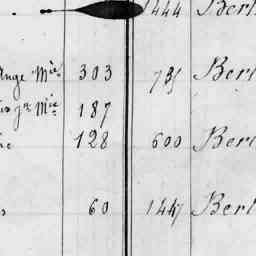 1444 Berl
ange Mie 303 731 Berl
jn Mie 187
128 600 Berl
60 1447 Berl